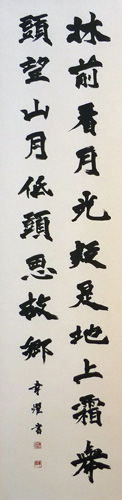 林前看月光疑是地上霜舉
頭望山月低頭思故鄉